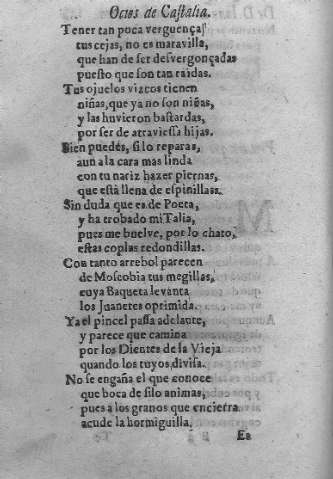 Ocios de Castalia.
Tener tan poca verguença
tus cejas, no es maravilla,
que han de ser desvergonçadas
puesto que son tan raidas.
Tus ojuelos vizcos tienen
niñas, que ya no son niñas,
y las huvieron bastardas,
por ser de atraviessa hijas.
Bien puedes, si lo reparas,
aun a la cara mas linda
con tu nariz hazer piernas,
que està llena de espinillas.
Sin duda que es de Poeta,
y ha trobado mi Talia,
pues me buelve, por lo chato,
estas coplas redondillas.
Con tanto arrebol parecen
de Moscobia tus megillas,
cuya Baqueta levanta
los Juanetes oprimida.
Ya el pincel passa adelante,
y parece que camina
por los Dientes de la Vieja
quando los tuyos, divisa.
No se engaña el que conoce
que boca de silo animas,
pues a los granos que encierra
acude la hormiguilla.
Ea